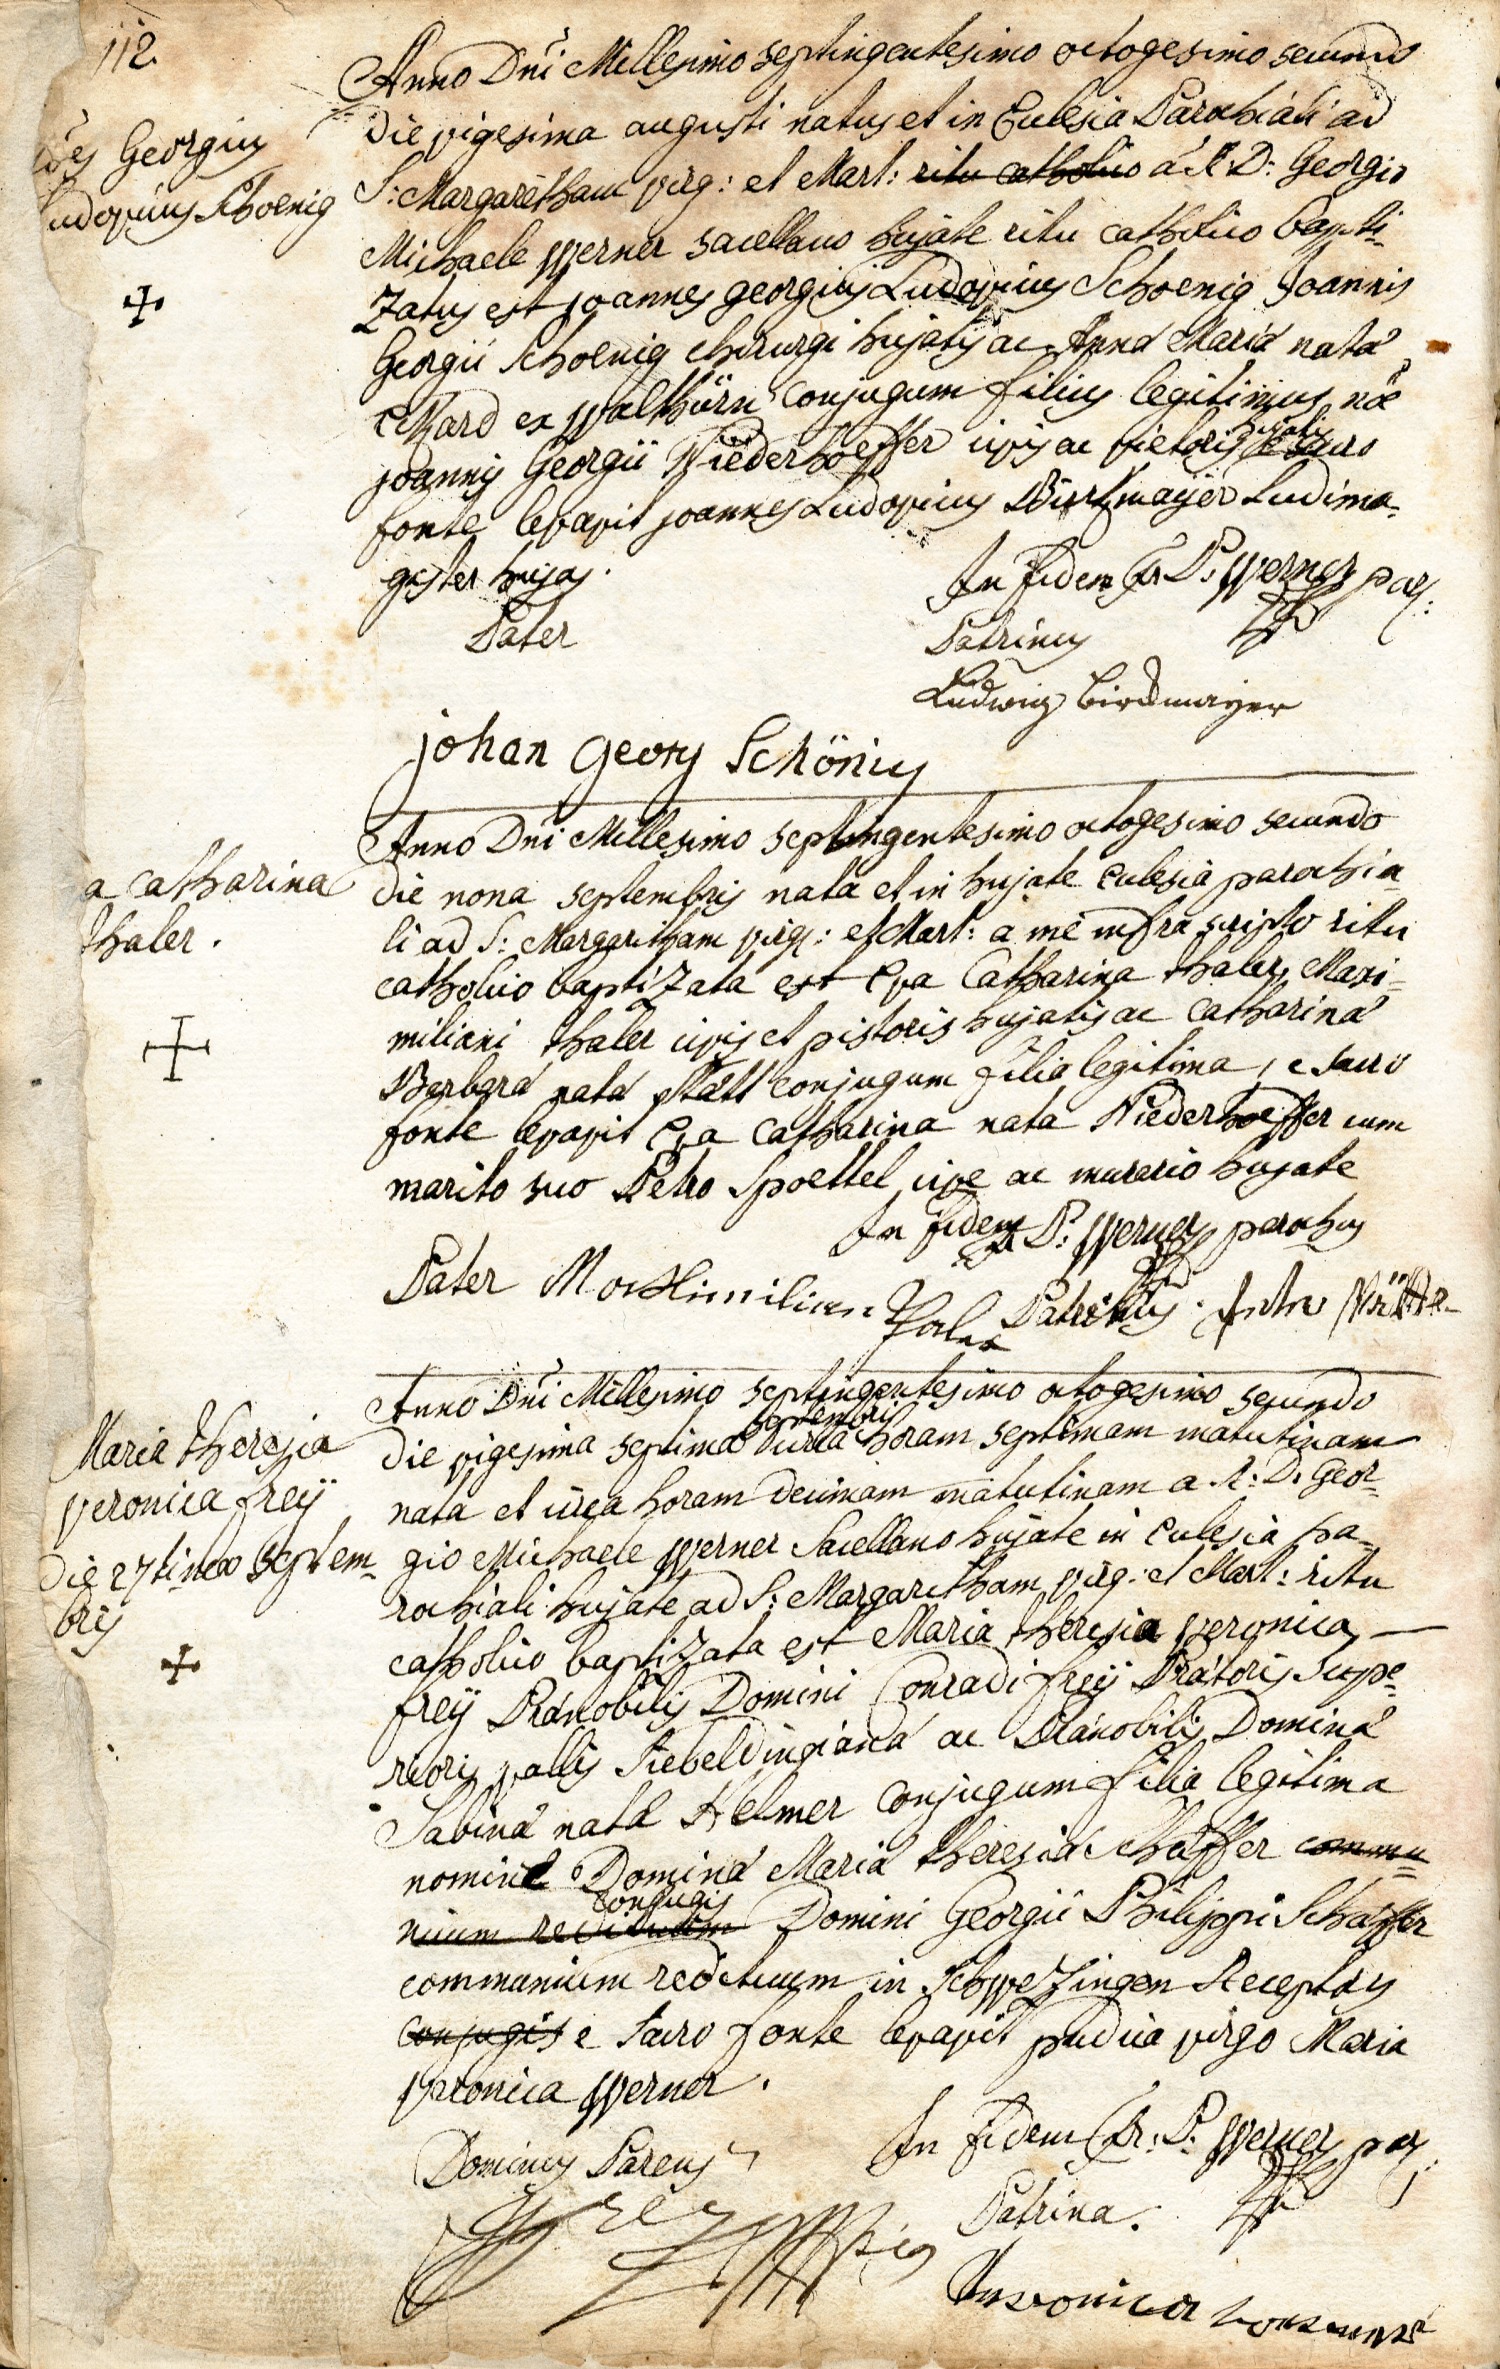 112.
Anno Dni Millesimo septingentesimo octogesimo secundo
die vigesima augusti natus et in Ecclesia Parochiali ad
S: Margaretham virg: et Mart: ritu catholico á R: D: Georgio
Michaele Werner sacellano hujate ritu catholico bapti-
zatus est joannes georgius Ludovicus Schoenig Joannis
Georgii Schoenig chirurgi hujatis ac Anná Mariá natá
ex Walthürn conjugum filius legitimus, nõe
joannis Georgii Niederhoeffer civis ac vietoris hujatis e sacro
fonte levavit joannes Ludovicus Birkmayer Ludima-
gister hujas.
Georgius
Ludovicus Schoenig
In fidem P: Werner par:
Pater
Patrinus
Ludwig Birckmayer
johan georg Schönig
Anno Dni Millesimo septingentesimo octogesimo secundo
die nona septembris nata et in hujate Ecclesia parochia-
li ad S: Margaritham virg: et Mart: a me infra scripto ritu
catholico baptizata est Eva Catharina thaler, Maxi-
miliani thaler civis et pistoris hujatis ac catharina
Barbará natá conjugum filia legitima, e sacro
fonte levavit Eva Catharina nata Niederhoeffer cum
marito suo Petro Spoettel cive ac murario hujate
a Catharina
thaler.
In fidem P: Werner parochus
Pater Maxximilian
Thaler
Patrinus.
Anno Dni Millesimo septingentesimo octogesimo secundo
die vigesima septima septembris circa horam septimam matutinam
nata et circa horam decimam matutinam a R: D: Geor-
gio Michaele Werner Sacellano hujate in Ecclesia pa-
rochiali hujate ad S: Margaretham virg: et Mart: ritu
catholico baptizata est Maria theresia veronica
freÿ Pránobilis Domini Conradi freÿ Prátoris Supe-
rioris vallis Siebeldingianá ac Pránobilis Dominá
Sabiná natá Helmer conjugum filia legitima
nomine Dominá Mariá theresiá Scháffer commu-
nium redituum conjugis Domini Georgii Philippi Scháffer
communium redituum in Schwezingen Receptoris
conjugis e sacro fonte levavit pudica virgo Maria
veronica Werner.
Maria theresia
veronica freÿ
die 27tima Septem-
bris
Dominus Parens
In fidem P. Werner par:
Patrina.